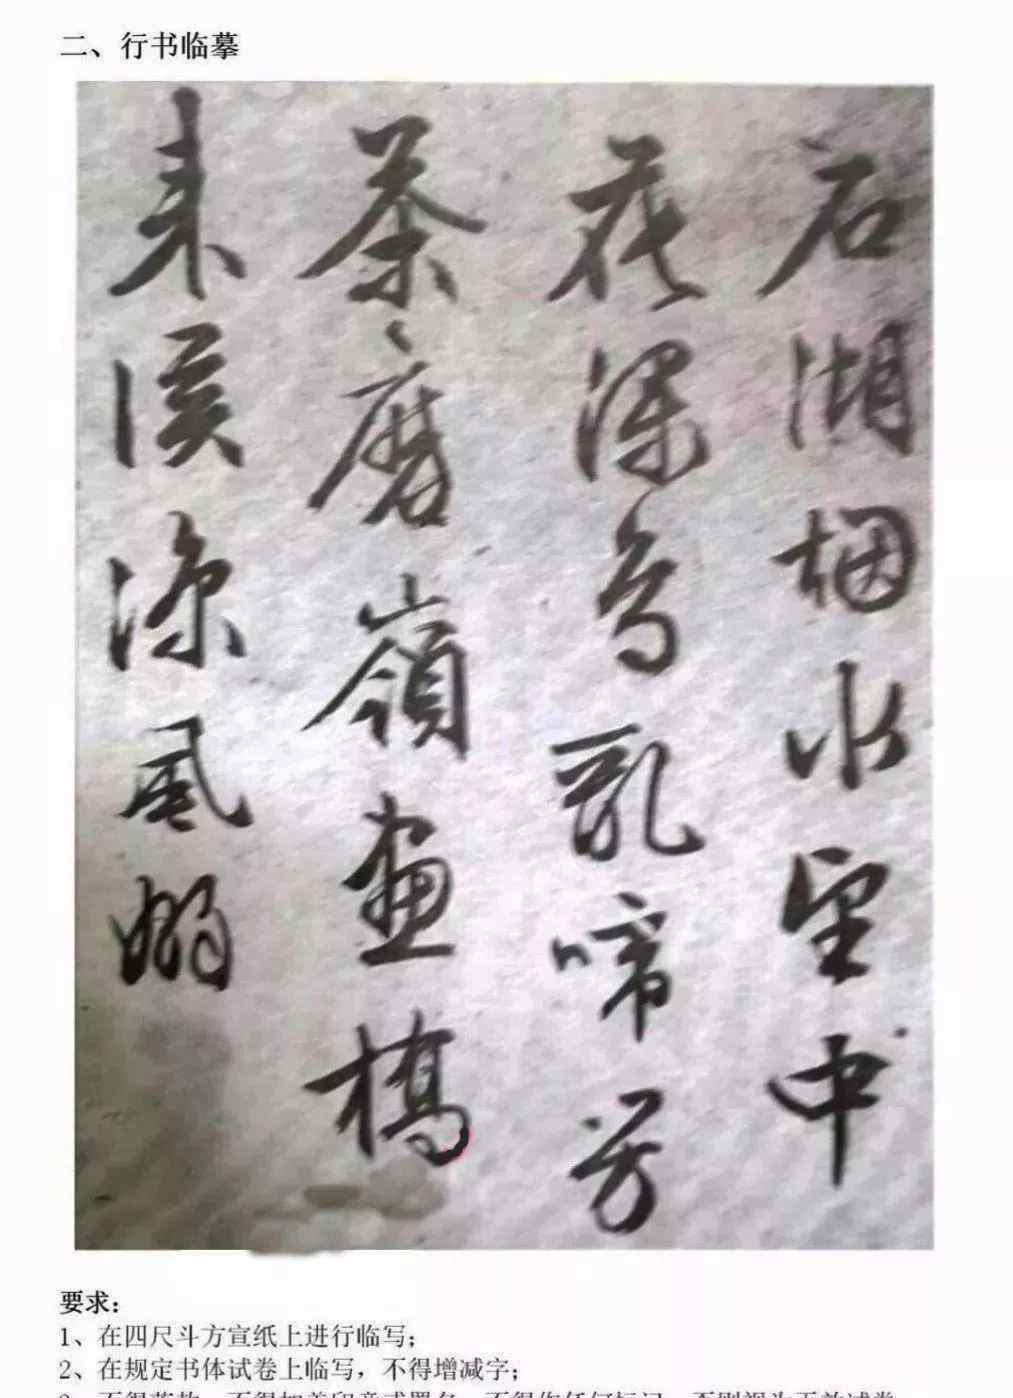 二、行书临摹
石湖烟水望中
花深鳥亂啼芳
茶磨嶺畫橋
来溪涼風嫋
要求：
1、在四尺斗方宣纸上进行临写；
2、在规定书体试卷上临写，不得增减字；